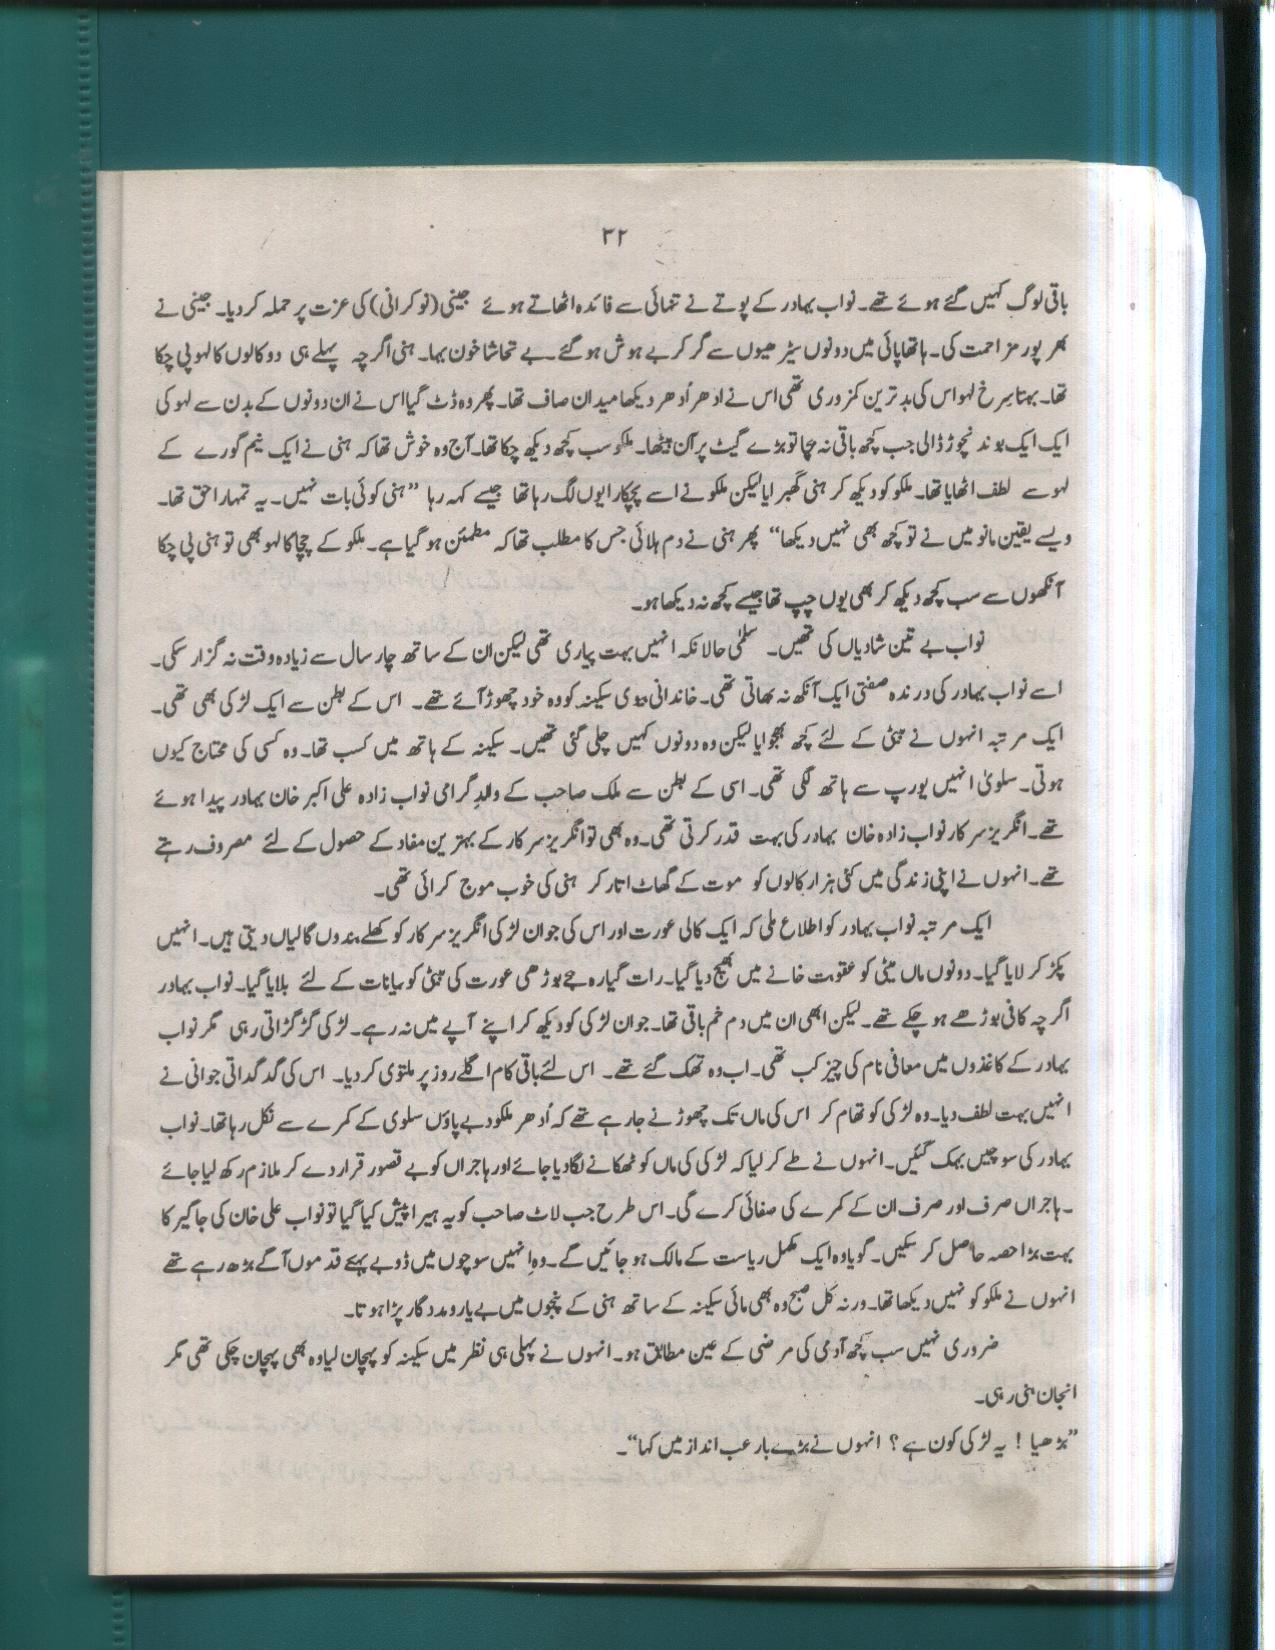 ۳۲
باقی لوگ کہیں گئے ہوئے تھے۔ نواب بہادر کے پوتے نے تنہائی سے فائدہ اٹھاتے ہوئے جینی (نوکرانی) کی عزت پر حملہ کر دیا۔ جینی نے
بھر پور مزاحمت کی۔ ہاتھا پائی میں دونوں سیڑھیوں سے گر کر بے ہوش ہو گئے۔ بے تحاشا خون بہا۔ ہنی اگرچہ پہلے ہی دو کالوں کا لہو پی چکا
تھا۔ بہتا سرخ لہو اس کی بدترین کمزوری تھی اس نے ادھر اُدھر دیکھا میدان صاف تھا۔ پھر وہ ڈٹ گیا اس نے ان دونوں کے بدن سے لہو کی
ایک ایک بوند نچوڑ ڈالی جب کچھ باقی نہ بچا تو بڑے گیٹ پر آن بیٹھا۔ ملکو سب کچھ دیکھ چکا تھا۔ آج وہ خوش تھا کہ ہنی نے ایک نیم گورے کے
لہو سے لطف اٹھایا تھا۔ ملکو کو دیکھ کر ہنی گھبرایا لیکن ملکو نے اسے پچکارا یوں لگ رہا تھا جیسے کہہ رہا ”ہنی کوئی بات نہیں۔ یہ تمہارا حق تھا۔
ویسے یقین مانو میں نے تو کچھ بھی نہیں دیکھا“ پھر ہنی نے دم ہلائی جس کا مطلب تھا کہ مطمئن ہو گیا ہے۔ ملکو کے چچا کا لہو بھی تو ہنی پی چکا
آنکھوں سے سب کچھ دیکھ کر بھی یوں چپ تھا جیسے کچھ نہ دیکھا ہو۔
نواب بے تین شادیاں کی تھیں۔ سلمٰی حالانکہ انہیں بہت پیاری تھی لیکن ان کے ساتھ چار سال سے زیادہ وقت نہ گزار سکی۔
اسے نواب بہادر کی درندہ صفتی ایک آنکھ نہ بھاتی تھی۔ خاندانی بیوی سکینہ کو وہ خود چھوڑ آئے تھے۔ اس کے بطن سے ایک لڑکی بھی تھی۔
ایک مرتبہ انہوں نے بیٹی کے لئے کچھ بھجوایا لیکن وہ دونوں کہیں چلی گئی تھیں۔ سکینہ کے ہاتھ میں کسب تھا۔ وہ کسی کی محتاج کیوں
ہوتی۔ سلویٰ انہیں یورپ سے ہاتھ لگی تھی۔ اسی کے بطن سے ملک صاحب کے والدِ گرامی نواب زادہ علی اکبر خان بہادر پیدا ہوئے
تھے۔ انگریز سرکار نواب زادہ خان بہادر کی بہت قدر کرتی تھی۔ وہ بھی تو انگریز سرکار کے بہترین مفاد کے حصول کے لئے مصروف رہتے
تھے۔ انہوں نے اپنی زندگی میں کئی ہزار کالوں کو موت کے گھاٹ اتار کر ہنی کی خوب موج کرائی تھی۔
ایک مرتبہ نواب بہادر کو اطلاع ملی کہ ایک کالی عورت اور اس کی جوان لڑکی انگریز سرکار کو کھلے بندوں گالیاں دیتی ہیں۔ انہیں
پکڑ کر لایا گیا۔ دونوں ماں بیٹی کو عقوبت خانے میں بھیج دیا گیا۔ رات گیارہ بجے بوڑھی عورت کی بیٹی کو بیانات کے لئے بلایا گیا۔ نواب بہادر
اگرچہ کافی بوڑھے ہو چکے تھے۔ لیکن ابھی ان میں دم خم باقی تھا۔ جوان لڑکی کو دیکھ کر اپنے آپے میں نہ رہے۔ لڑکی گڑگڑاتی رہی مگر نواب
بہادر کے کاغذوں میں معافی نام کی چیز کب تھی۔ اب وہ تھک گئے تھے۔ اس لئے باقی کام اگلے روز پر ملتوی کر دیا۔ اس کی گدگداتی جوانی نے
انہیں بہت لطف دیا۔ وہ لڑکی کو تھام کر اس کی ماں تک چھوڑنے جا رہے تھے کہ اُدھر ملکو دبے پاؤں سلوی کے کمرے سے نکل رہا تھا۔ نواب
بہادر کی سوچیں بہک گئیں۔ انہوں نے طے کر لیا کہ لڑکی کی ماں کو ٹھکانے لگا دیا جائے اور ہاجراں کو بے قصور قرار دے کر ملازم رکھ لیا جائے
۔ ہاجراں صرف اور صرف ان کے کمرے کی صفائی کرے گی۔ اس طرح جب لاٹ صاحب کو یہ ہیرا پیش کیا گیا تو نواب علی خان کی جاگیر کا
بہت بڑا حصہ حاصل کر سکیں۔ گویا وہ ایک مکمل ریاست کے مالک ہو جائیں گے۔ وہ اِنہیں سوچوں میں ڈوبے پہلے قدموں آگے بڑھ رہے تھے
انہوں نے ملکو کو نہیں دیکھا تھا۔ ورنہ کل صبح وہ بھی مائی سکینہ کے ساتھ ہنی کے پنجوں میں بے یار و مددگار پڑا ہوتا۔
ضروری نہیں سب کچھ آدمی کی مرضی کے عین مطابق ہو۔ انہوں نے پہلی ہی نظر میں سکینہ کو پہچان لیا وہ بھی پہچان چکی تھی مگر
انجان بنی رہی۔
”بڑھیا ! یہ لڑکی کون ہے ؟ انہوں نے بڑے بارعب انداز میں کہا“۔